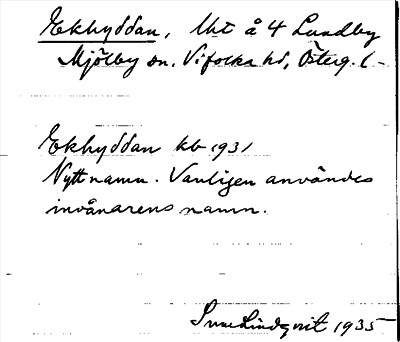 Ekhyddan, lht å 4 Lundby
Mjölby sn. Vifolka hd, Österg. l –
Ekhyddan kb 1931
Nytt namn. Vanligen användes
invånarens namn.
Sune Lindqvist 1935